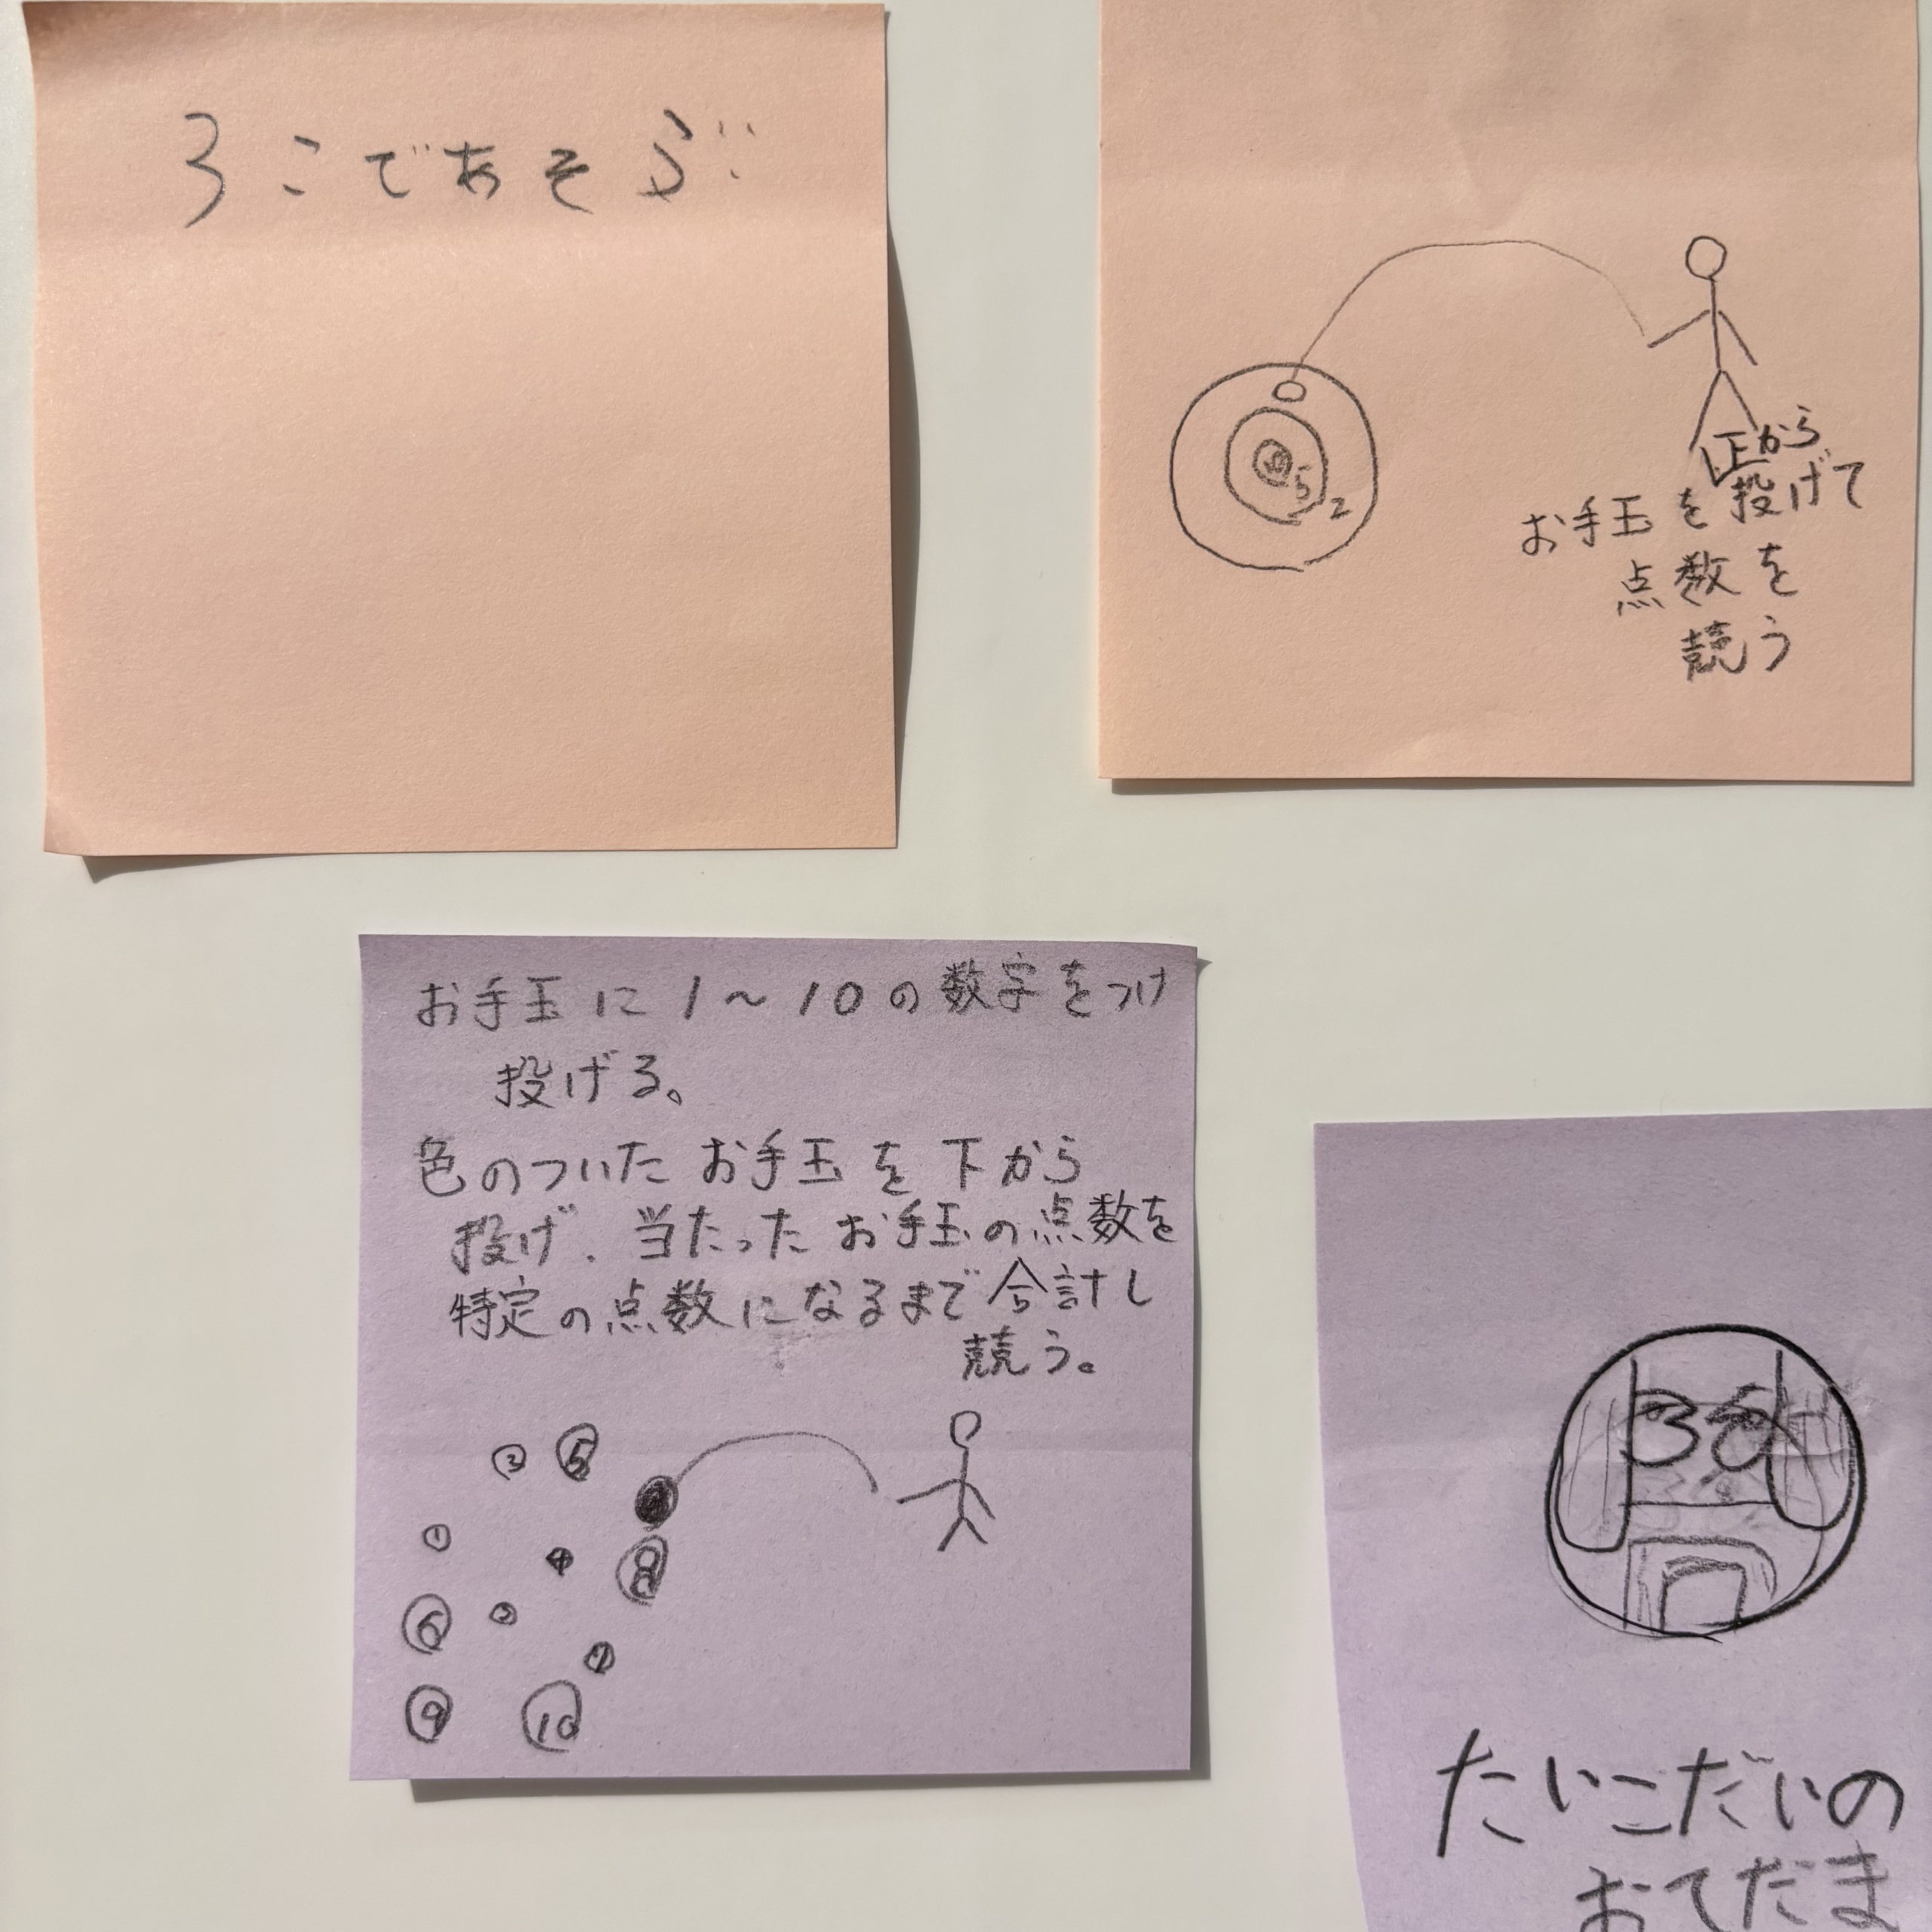 3こであそぶ
10
5
2
下から
お手玉を投げて
点数を
競う
お手玉に1～10の数字をつけ
投げる。
色のついたお手玉を下から
投げ、当たったお手玉の点数を
特定の点数になるまで合計し
競う。
3
5
1
4
8
6
2
7
9
10
たいこだいの
おてだま